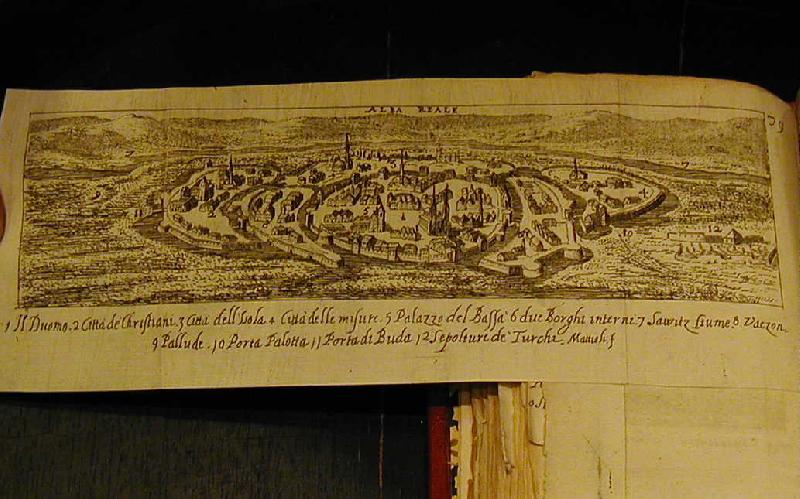 ALBA REALE
39
1 Il Duomo. 2 Città de Christiani. 3 Città dell'Isola. 4 Città delle misure. 5 Palazzo del Bassà 6 due Borghi interni 7 Sawitz fiume. 8 Vaczon
9 Pallude. 10 Porta Palotta 11 Porta di Buda 12 Sepolture de Turchi.